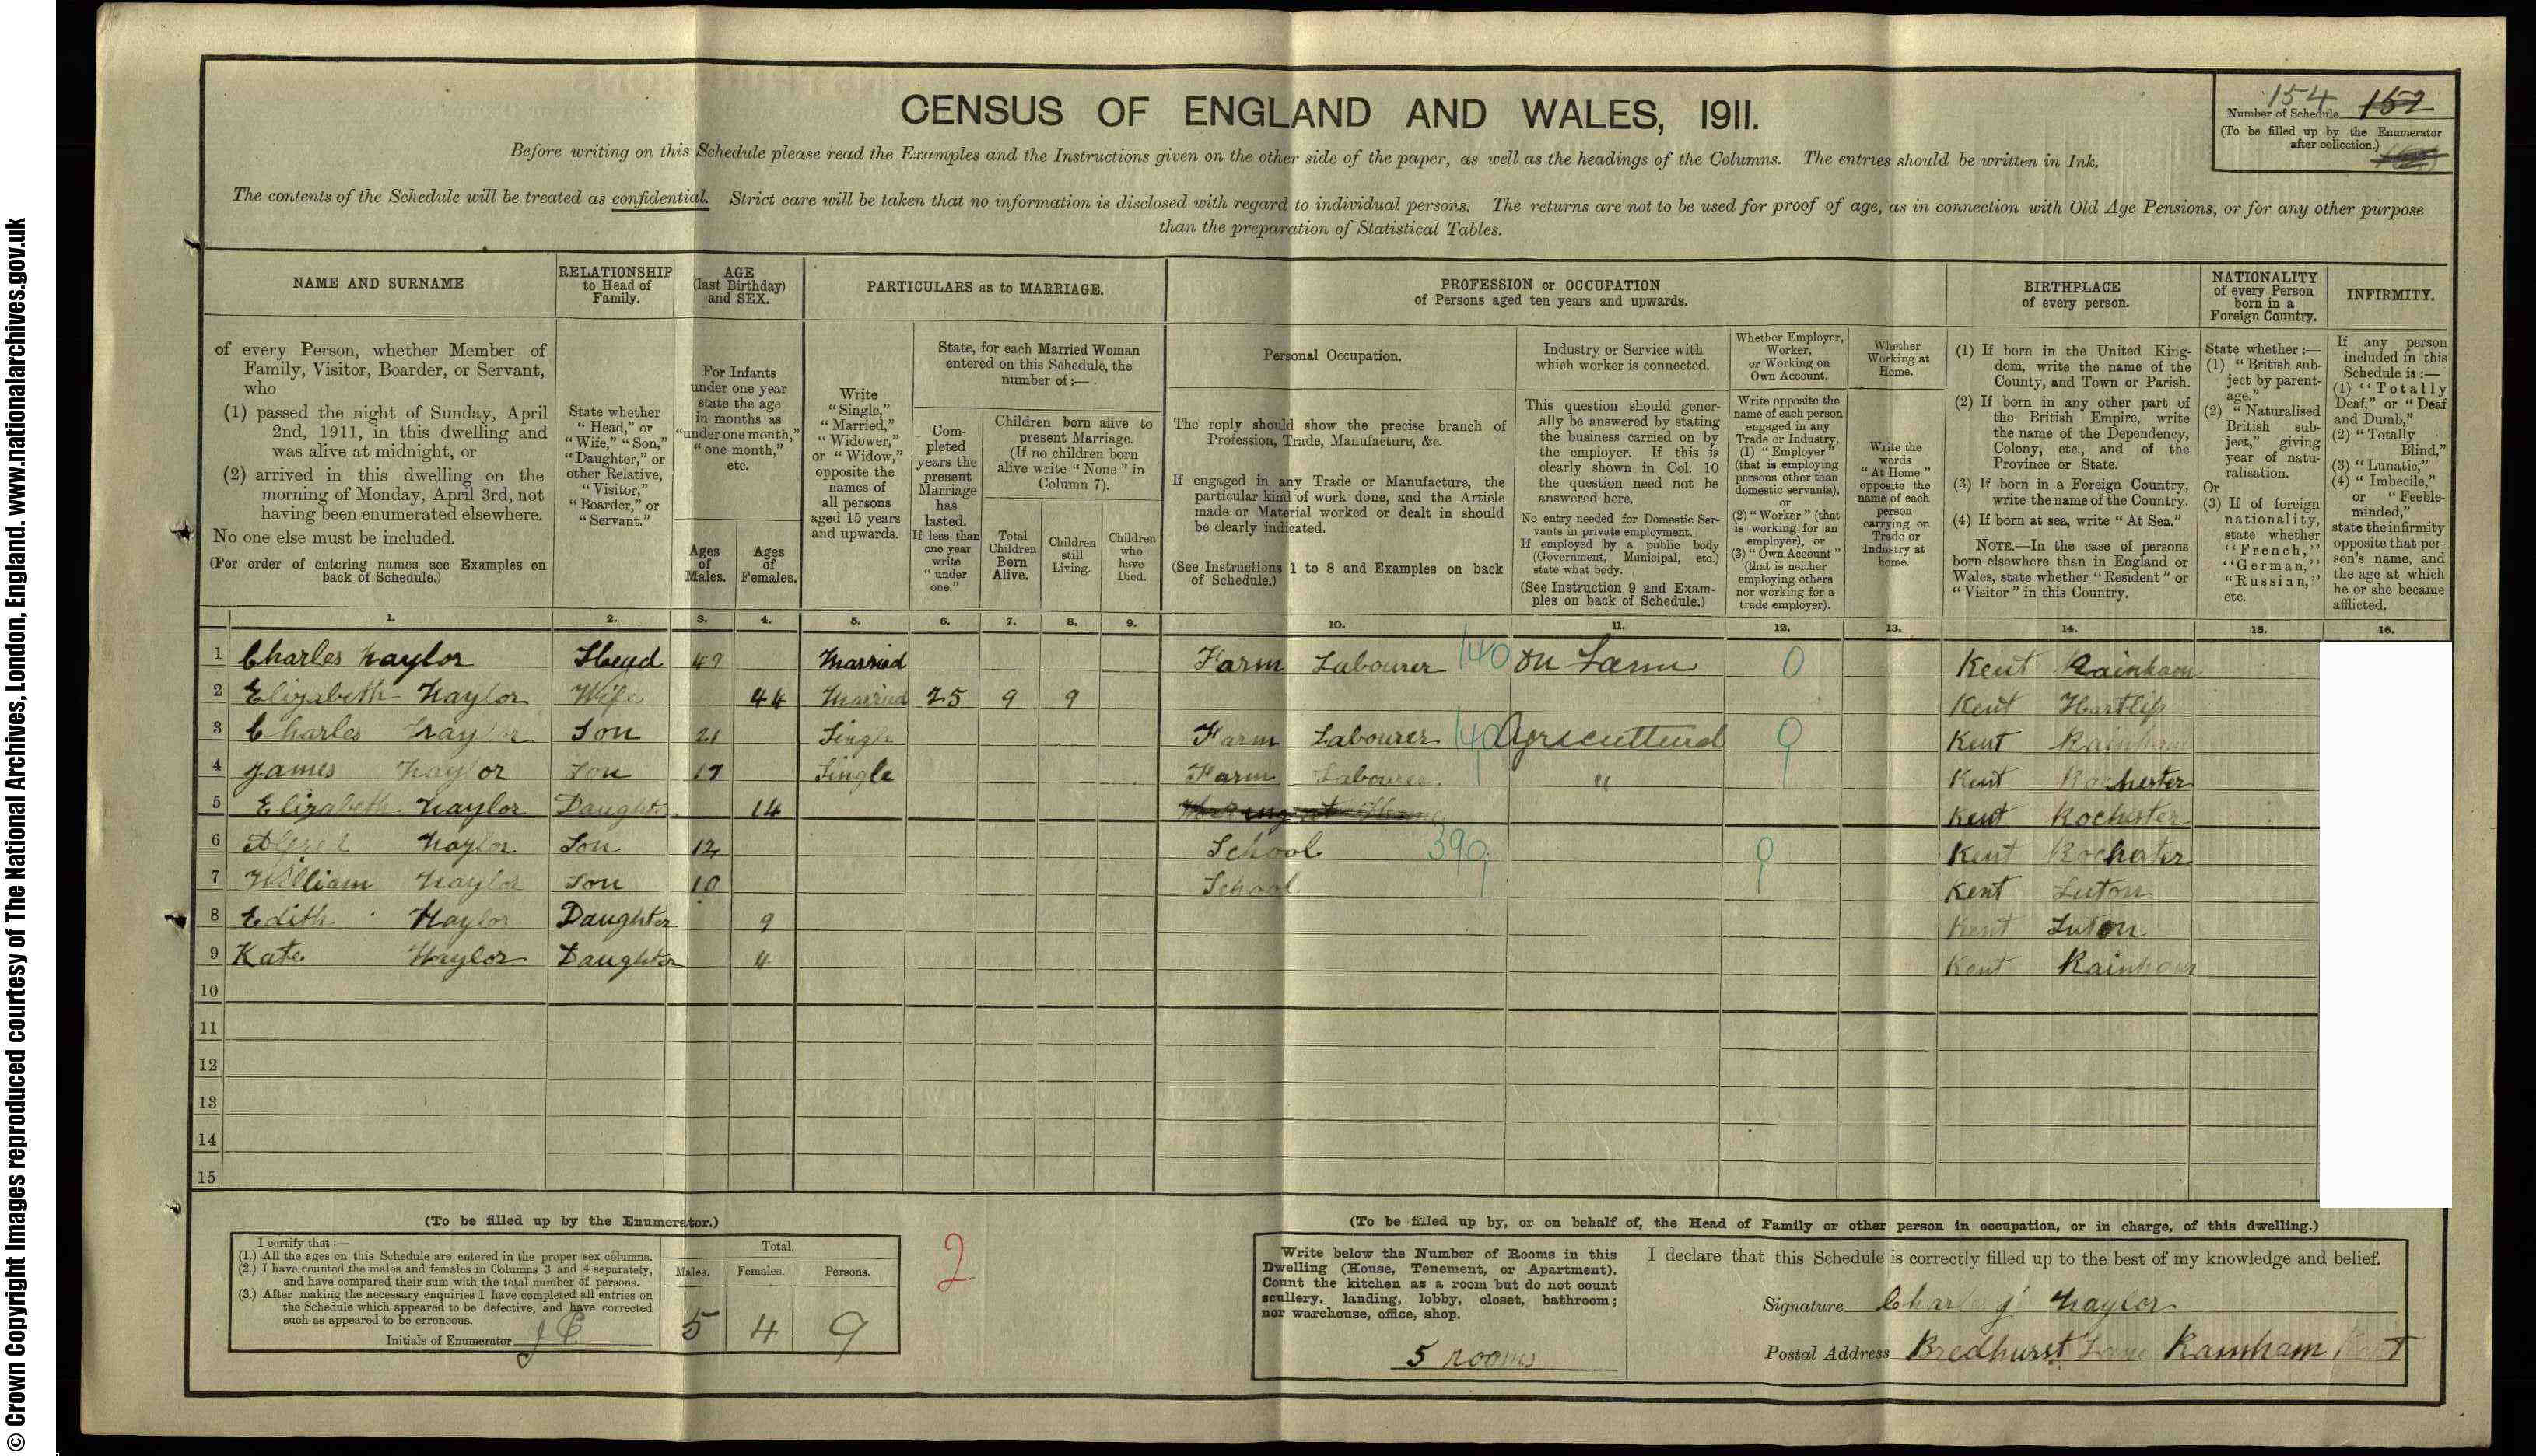 © Crown Copyright Images reproduced courtesy of The National Archives, London, England. www.nationalarchives.gov.uk
CENSUS OF ENGLAND AND WALES, 1911.
154 152
Number of Schedule
(To be filled up by the Enumerator
after collection.)
Before writing on this Schedule please read the Examples and the Instructions given on the other side of the paper, as well as the headings of the Columns. The entries should be written in Ink.
The contents of the Schedule will be treated as confidential. Strict care will be taken that no information is disclosed with regard to individual persons. The returns are not to be used for proof of age, as in connection with Old Age Pensions, or for any other purpose
than the preparation of Statistical Tables.
NAME AND SURNAME
of every Person, whether Member of
Family, Visitor, Boarder, or Servant,
who
(1) passed the night of Sunday, April
2nd, 1911, in this dwelling and
was alive at midnight, or
(2) arrived in this dwelling on the
morning of Monday, April 3rd, not
having been enumerated elsewhere.
No one else must be included.
(For order of entering names see Examples on
back of Schedule.)
RELATIONSHIP
to Head of
Family.
State whether
"Head," or
"Wife," "Son,"
"Daughter," or
other Relative,
"Visitor,"
"Boarder," or
"Servant."
AGE
(last Birthday)
and SEX.
For Infants
under one year
state the age
in months as
"under one month,"
"one month,"
etc.
Ages
of
Males.
Ages
of
Females.
PARTICULARS as to MARRIAGE.
Write
"Single,"
"Married,"
"Widower,"
or "Widow,"
opposite the
names of
all persons
aged 15 years
and upwards.
State, for each Married Woman
entered on this Schedule, the
number of:—
Com-
pleted
years the
present
Marriage
has
lasted.
If less than
one year
write
"under
one."
Children born alive to
present Marriage.
(If no children born
alive write "None" in
Column 7).
Total
Children
Born
Alive.
Children
still
Living.
Children
who
have
Died.
PROFESSION or OCCUPATION
of Persons aged ten years and upwards.
Personal Occupation.
The reply should show the precise branch of
Profession, Trade, Manufacture, &c.
If engaged in any Trade or Manufacture, the
particular kind of work done, and the Article
made or Material worked or dealt in should
be clearly indicated.
(See Instructions 1 to 8 and Examples on back
of Schedule.)
Industry or Service with
which worker is connected.
This question should gener-
ally be answered by stating
the business carried on by
the employer. If this is
clearly shown in Col. 10
the question need not be
answered here.
No entry needed for Domestic Ser-
vants in private employment.
If employed by a public body
(Government, Municipal, etc.)
state what body.
(See Instruction 9 and Exam-
ples on back of Schedule.)
Whether Employer,
Worker,
or Working on
Own Account.
Write opposite the
name of each person
engaged in any
Trade or Industry,
(1) "Employer"
(that is employing
persons other than
domestic servants),
or
(2) "Worker" (that
is working for an
employer), or
(3) "Own Account"
(that is neither
employing others
nor working for a
trade employer).
Whether
Working at
Home.
Write the
words
"At Home"
opposite the
name of each
person
carrying on
Trade or
Industry at
home.
BIRTHPLACE
of every person.
(1) If born in the United King-
dom, write the name of the
County, and Town or Parish.
(2) If born in any other part of
the British Empire, write
the name of the Dependency,
Colony, etc., and of the
Province or State.
(3) If born in a Foreign Country,
write the name of the Country.
(4) If born at sea, write "At Sea."
NOTE.—In the case of persons
born elsewhere than in England or
Wales, state whether "Resident" or
"Visitor" in this Country.
NATIONALITY
of every Person
born in a
Foreign Country.
State whether:—
(1) "British sub-
ject by parent-
age."
(2) "Naturalised
British sub-
ject," giving
year of natu-
ralisation.
Or
(3) If of foreign
nationality,
state whether
"French,"
"German,"
"Russian,"
etc.
INFIRMITY.
If any person
included in this
Schedule is:—
(1) "Totally
Deaf," or "Deaf
and Dumb,"
(2) "Totally
Blind,"
(3) "Lunatic,"
(4) "Imbecile,"
or "Feeble-
minded,"
state the infirmity
opposite that per-
son's name, and
the age at which
he or she became
afflicted.
1. 2. 3. 4. 5. 6. 7. 8. 9. 10. 11. 12. 13. 14. 15. 16.
1 Charles Naylor Head 49 Married Farm Labourer 140 on Farm 0 Kent Rainham
2 Elizabeth Naylor Wife 44 Married 25 9 9 Kent Hartlip
3 Charles Naylor Son 21 Single Farm Labourer 140 Agricultural 0 Kent Rainham
4 James Naylor Son 17 Single Farm Labourer " Kent Rochester
5 Elizabeth Naylor Daughter 14 Kent Rochester
6 Alfred Naylor Son 12 School 390 0 Kent Rochester
7 William Naylor Son 10 School Kent Luton
8 Edith Naylor Daughter 9 Kent Luton
9 Kate Naylor Daughter 4 Kent Rainham
10
11
12
13
14
15
(To be filled up by the Enumerator.)
I certify that:—
(1.) All the ages on this Schedule are entered in the proper sex columns.
(2.) I have counted the males and females in Columns 3 and 4 separately,
and have compared their sum with the total number of persons.
(3.) After making the necessary enquiries I have completed all entries on
the Schedule which appeared to be defective, and have corrected
such as appeared to be erroneous.
Initials of Enumerator
Total.
Males. Females. Persons.
5 4 9
2
(To be filled up by, or on behalf of, the Head of Family or other person in occupation, or in charge, of this dwelling.)
Write below the Number of Rooms in this
Dwelling (House, Tenement, or Apartment).
Count the kitchen as a room but do not count
scullery, landing, lobby, closet, bathroom;
nor warehouse, office, shop.
5 rooms
I declare that this Schedule is correctly filled up to the best of my knowledge and belief.
Signature Charles J Naylor
Postal Address Bredhurst Lane Rainham Kent